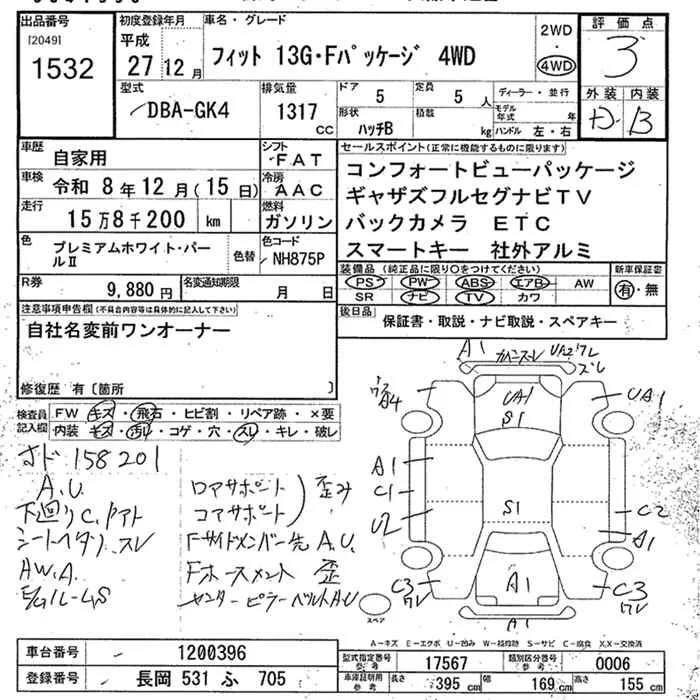 出品番号
[2049]
1532
初度登録年月
平成
27 12 月
車名・グレード
フィット 13G・Fパッケージ 4WD
2WD
・
4WD
評価点
3
外装 内装
B
型式
DBA-GK4
排気量
1317
CC
ドア
5
定員
5 人
形状
ハッチB
積載
kg
ディーラー・並行
モデル年式 年
ハンドル 左・右
車歴
自家用
シフト
FAT
車検
令和 8年12月(15日)
冷房
AAC
走行
15万8千200 km
燃料
ガソリン
色
プレミアムホワイト・パールⅡ
色替
色コード
NH875P
R券
9,880円
名変通知期限
月 日
セールスポイント(正常に機能するものに限ります)
コンフォートビューパッケージ
ギャザズフルセグナビTV
バックカメラ ETC
スマートキー 社外アルミ
装備品(純正品に限り○をつけてください)
PS PW ABS エアB AW
SR ナビ TV カワ
新車保証書
有・無
後日品
保証書・取説・ナビ取説・スペアキー
注意事項申告欄(不具合内容等は具体的に記入して下さい)
自社名変前ワンオーナー
修復歴 有〔箇所 〕
検査員記入欄
FW キズ・飛石・ヒビ割・リペア跡・×要
内装 キズ・汚れ・コゲ・穴・スレ・キレ・破レ
オド 158201
A.U.
下廻りC.
シートヘタリ.スレ
AW.A
ロアサポート
コアサポート
歪み
Fサイドメンバー先 A.U.
センターピラーベルトA.U
A1
UA1
S1
A4
UA1
A1
C1
U2
S1
C2
A1
C3
ワレ
A1
C3
ワレ
A1
スペア
A-キズ E-エクボ U-凹み W-補修跡 S-サビ C-腐食 X,XX-交換済
車台番号
1200396
登録番号
長岡 531 ふ 705
型式指定番号
参考
17567
類別区分番号
参考
0006
車庫証明用
参考
長さ 395 cm
幅 169 cm
高さ 155 cm